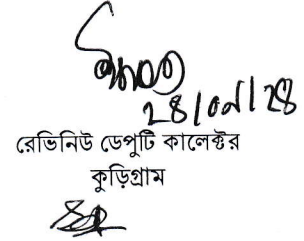 ২৪/০৯/২৪
রেভিনিউ ডেপুটি কালেক্টর
কুড়িগ্রাম